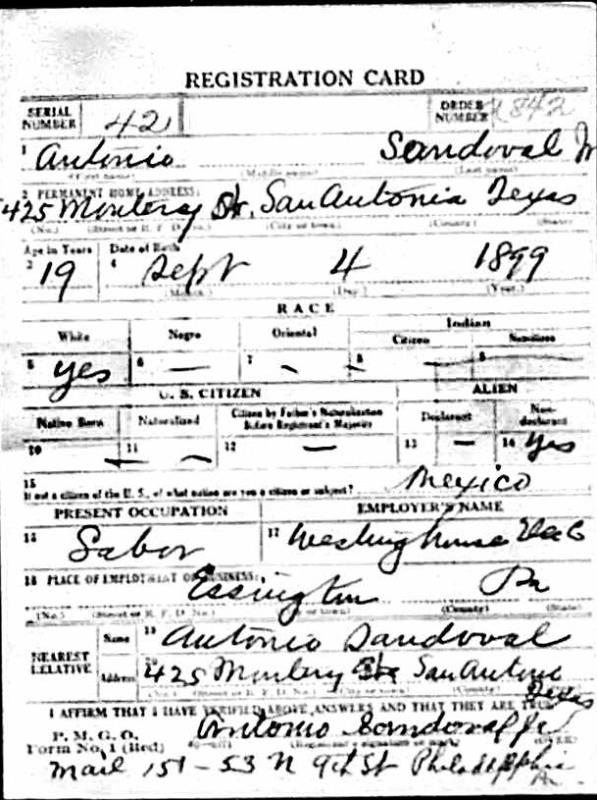 REGISTRATION CARD
SERIAL NUMBER 421 ORDER NUMBER 1842
1 Antonio Sandoval Jr
(First name) (Middle name) (Last name)
2 PERMANENT HOME ADDRESS:
425 Monterey St. San Antonia Texas
(No.) (Street or R. F. D. No.) (City or town) (County) (State)
Age in Years Date of Birth
3 19 4 Sept 4 1899
(Month) (Day) (Year)
RACE
White Negro Oriental Indian
Citizen Noncitizen
5 yes 6 — 7 - 8 - 9
U. S. CITIZEN ALIEN
Native Born Naturalized Citizen by Father's Naturalization Before Registrant's Majority Declarant Non-declarant
10 11 — 12 — 13 — 14 Yes
15 If not a citizen of the U. S., of what nation are you a citizen or subject? Mexico
PRESENT OCCUPATION EMPLOYER'S NAME
16 Labor 17 Westinghouse Elec Co
18 PLACE OF EMPLOYMENT OR BUSINESS:
Essington Pa
(No.) (Street or R. F. D. No.) (City or town) (County) (State)
NEAREST RELATIVE Name 19 Antonio Sandoval
Address 20 425 Montery St San Antonio Texas
(No.) (Street or R. F. D. No.) (City or town) (County)
I AFFIRM THAT I HAVE VERIFIED ABOVE ANSWERS AND THAT THEY ARE TRUE
P. M. G. O.
Form No. 1 (Red) Antonio Sandoval Jr
(Registrant's signature or mark) (OVER)
Mail 151-53 N 9th St Philadelphia Pa.